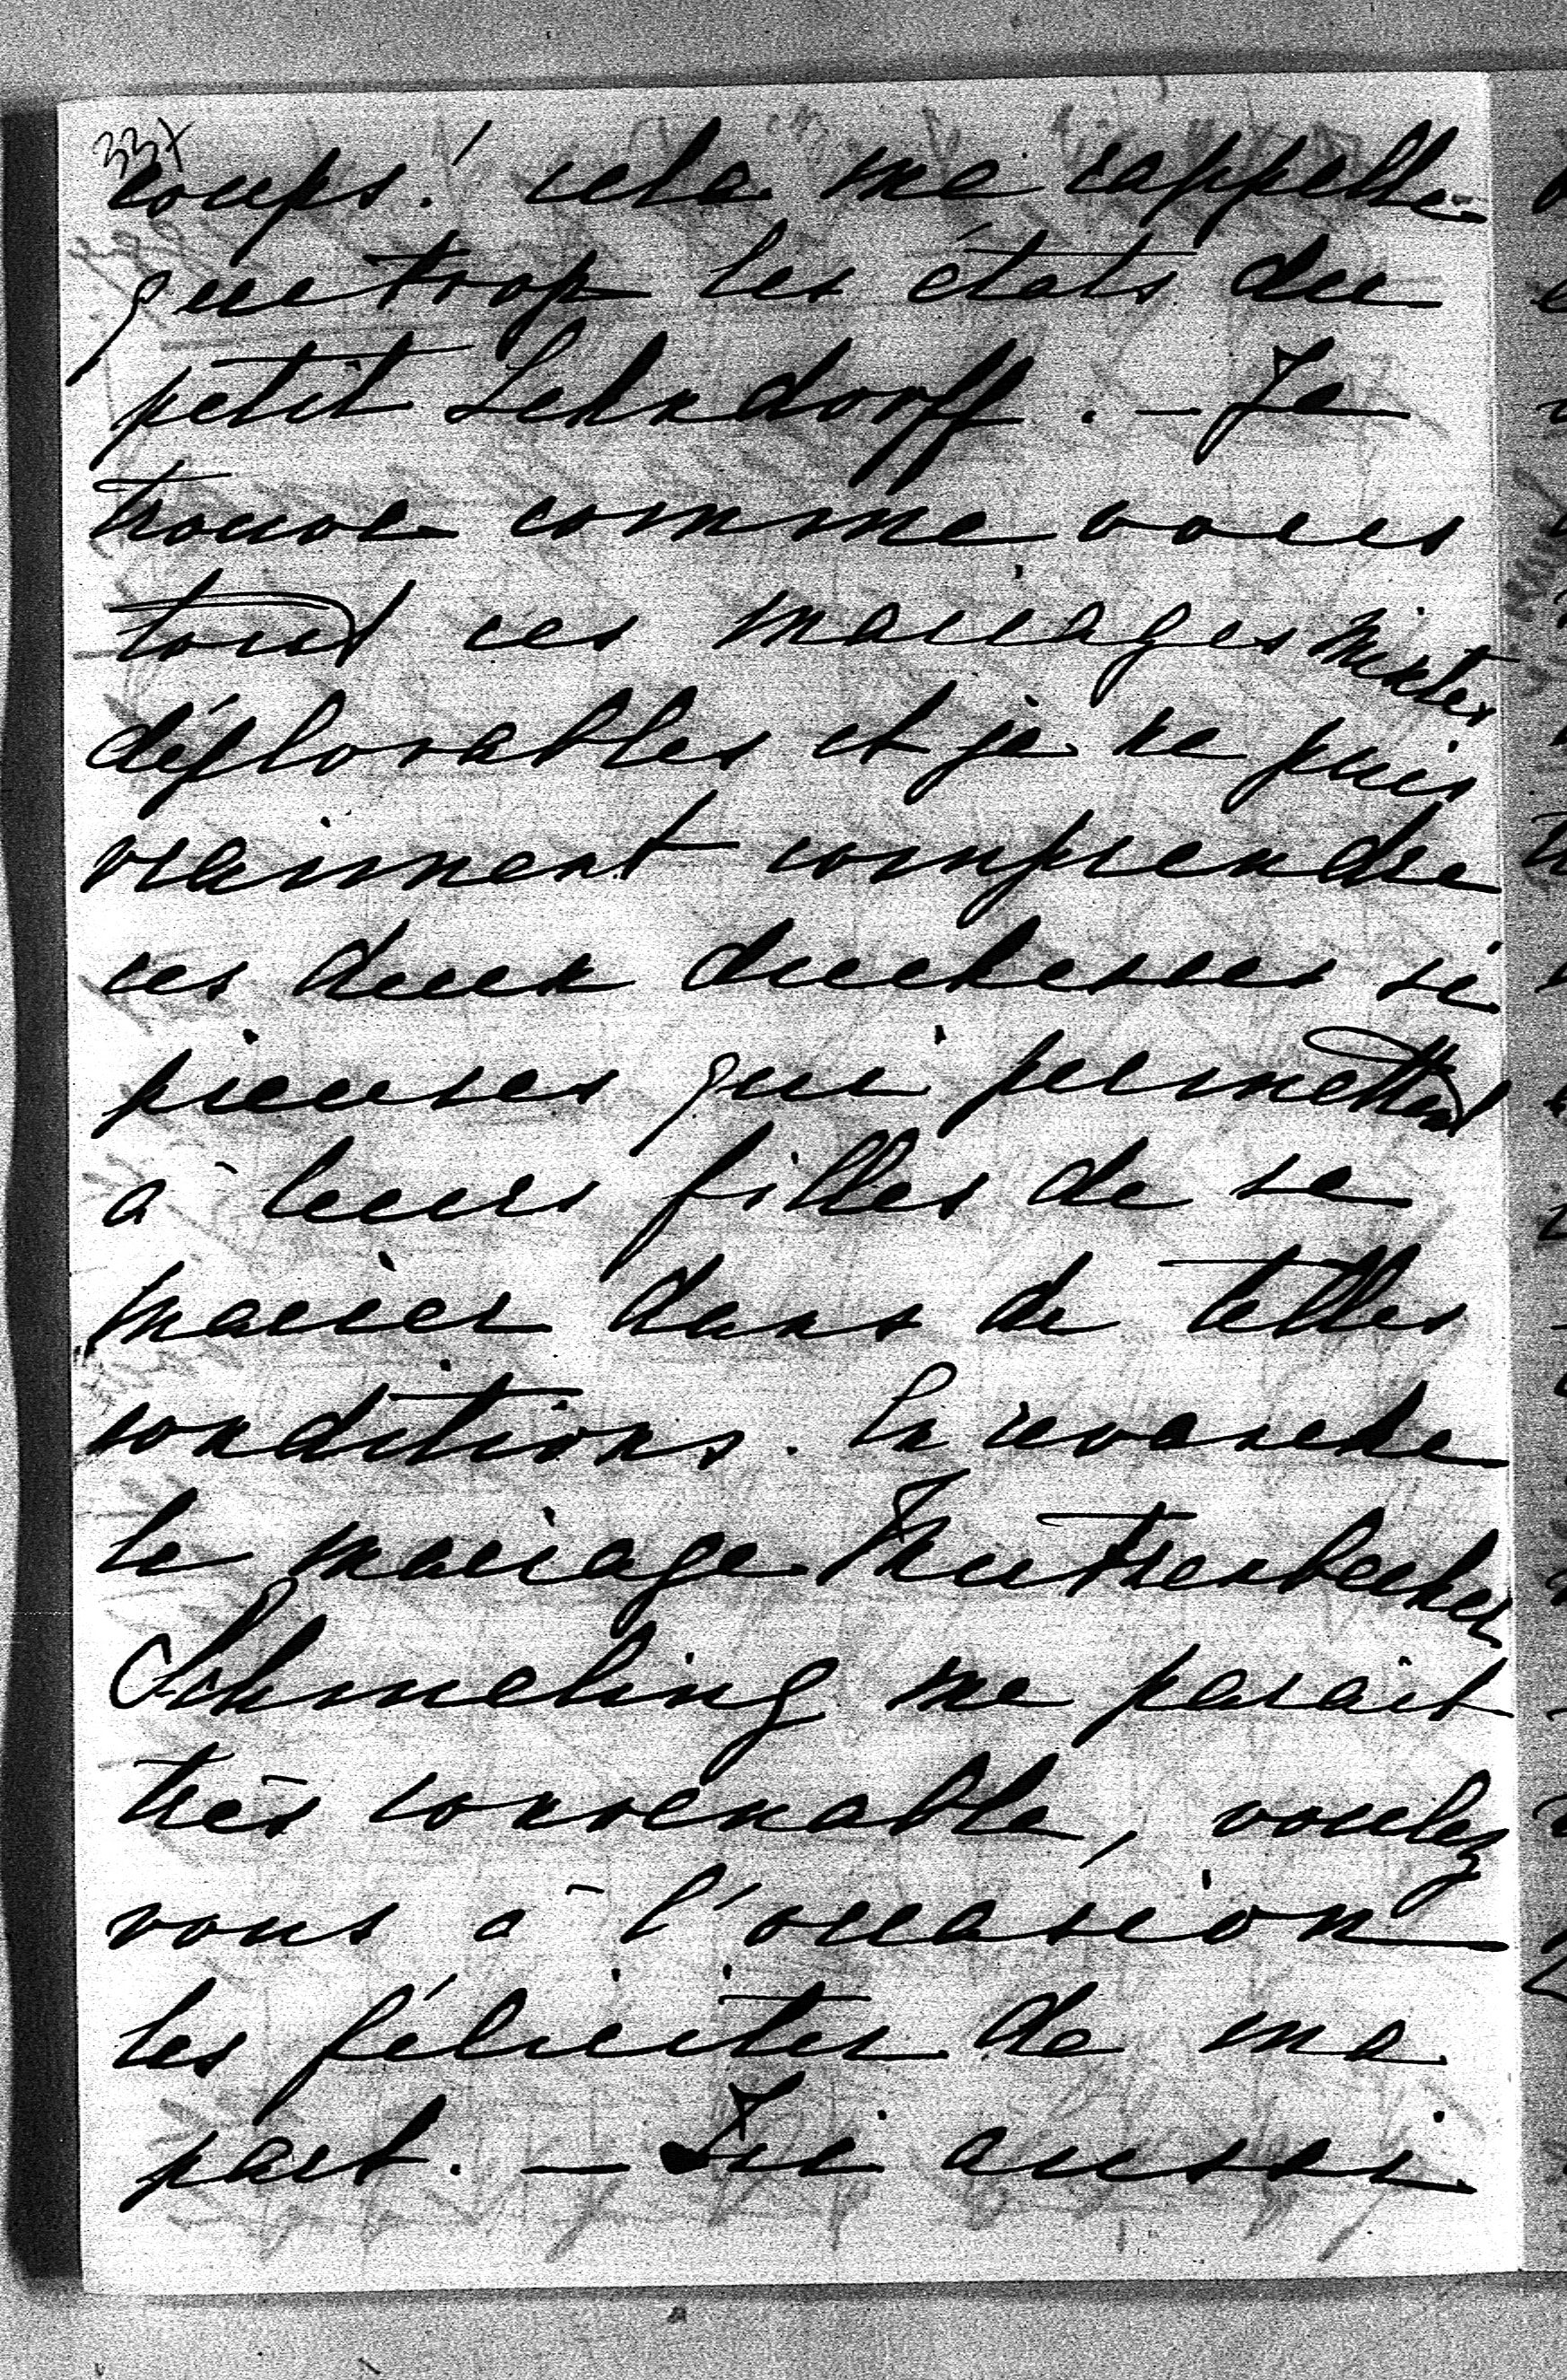 33x
coups! cela me rappelle
que trop les états du
petit Lehndorff. — Je
trouve comme vous
tout ces mariages mixtes
déplorables et je ne puis
vraiment comprendre
ces deux duchesses si
pieuses qui permettent
à leurs filles de se
marier dans de telles
conditions. En revanche
le mariage Mutzenbecher
Schmeling me parait
très convenable, voulez
vous à l'occasion
les féliciter de ma
part. — Ici aussi